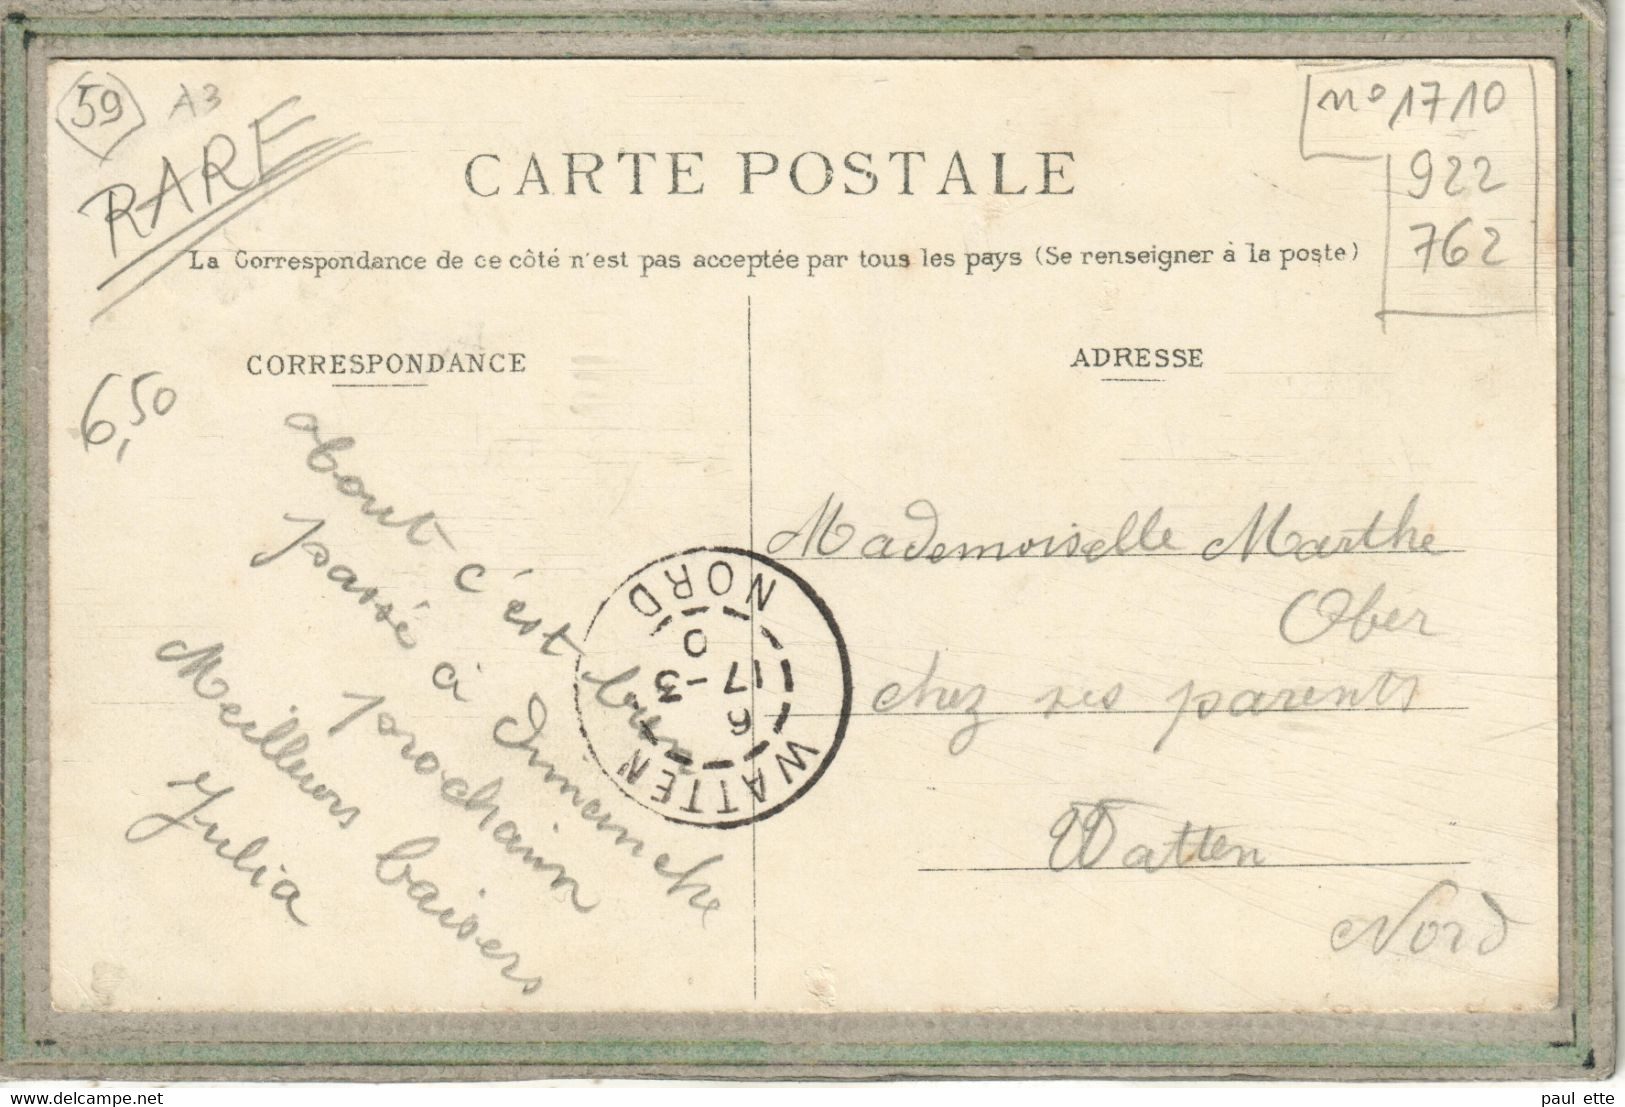 59
A3
RARE
nº 1710
922
762
CARTE POSTALE
La Correspondance de ce côté n'est pas acceptée par tous les pays (Se renseigner à la poste)
CORRESPONDANCE
ADRESSE
6,50
about c'est bien
passé à Dimanche
prochain
Meilleurs baisers
Julia
WATTEN
6
17 -3
0
NORD
Mademoiselle Marthe
Ober
chez ses parents
Watten
Nord
www.delcampe.net
paul ette